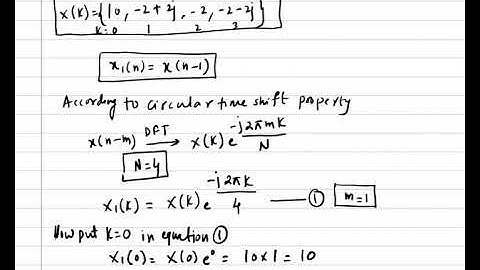 X(K)={10, -2+2j, -2, -2-2j}
K=0 1 2 3
x₁(n) = x(n-1)
According to circular time shift property
x(n-m) DFT→ X(K) e^(-j2πmK/N)
N=4
X₁(K) = X(K) e^(-j2πK/4) —— ① m=1
Now put K=0 in equation ①
X₁(0) = X(0) e⁰ = 10×1 = 10